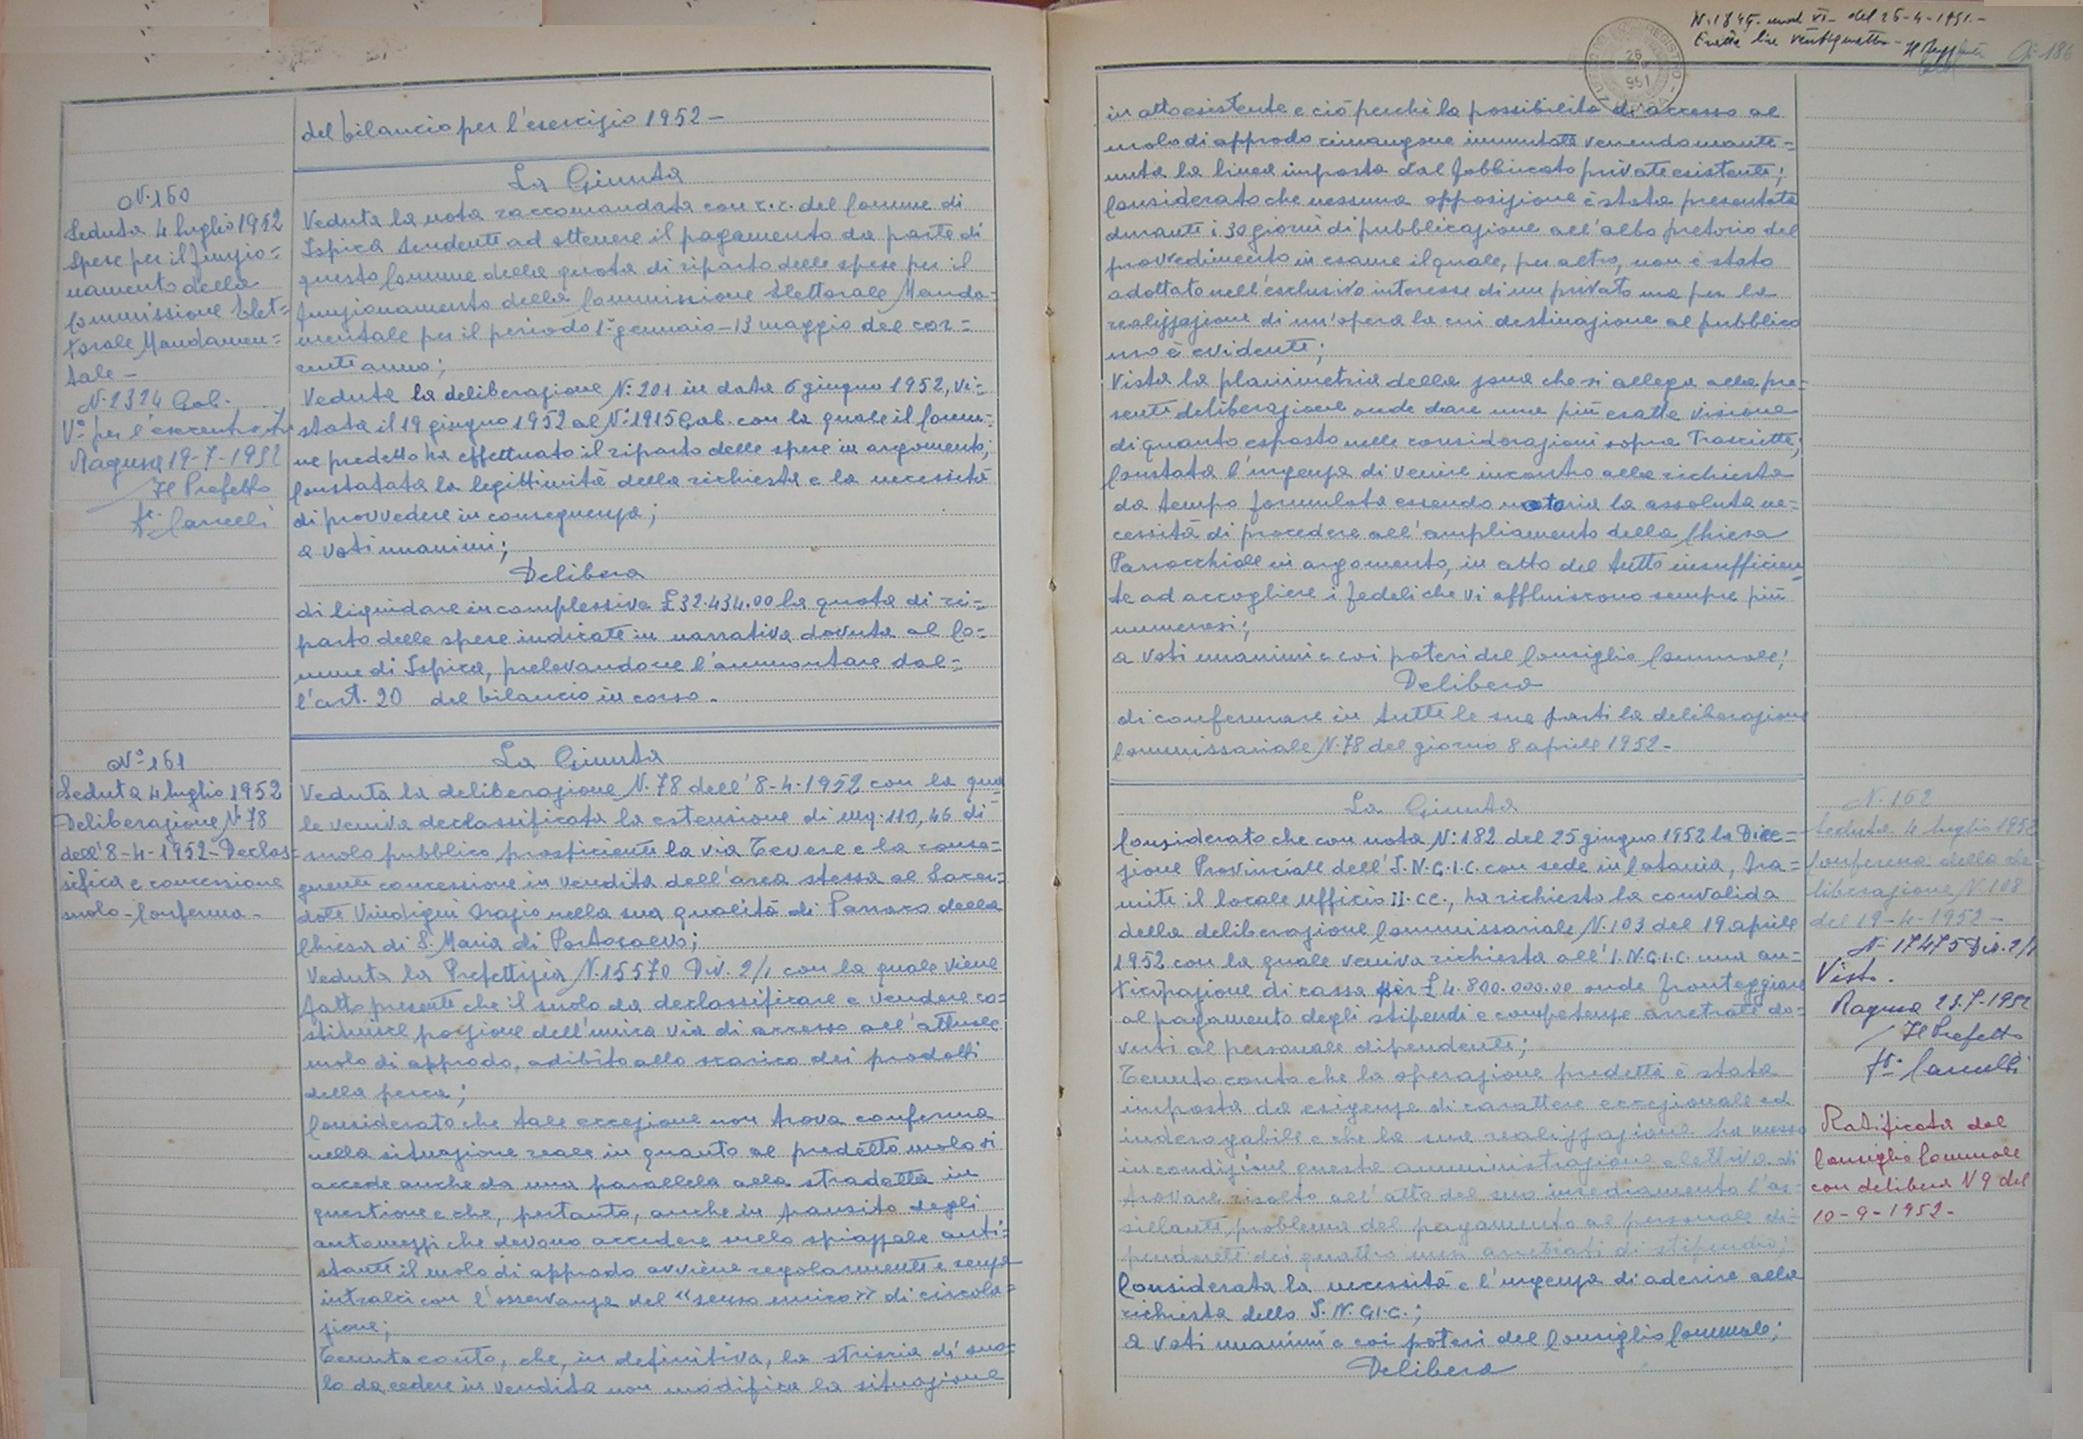 del bilancio per l'esercizio 1952 -
N. 160
Seduta 4 luglio 1952
Spese per il funzio=
namento della
Commissione Elet=
torale Mandamen=
tale -
N. 2324 Gab.
V° per l'esecutività
Ragusa 19-7-1952
Il Prefetto
La Giunta
Veduta la nota raccomandata con r.r. del Comune di
Ispica tendente ad ottenere il pagamento da parte di
questo Comune della quota di riparto delle spese per il
funzionamento della Commissione Elettorale Manda=
mentale per il periodo 1° gennaio - 13 maggio del cor=
rente anno;
Veduta la deliberazione N. 201 in data 6 giugno 1952, vi=
stata il 19 giugno 1952 al N° 1915 Gab. con la quale il Comu=
ne predetto ha effettuato il riparto delle spese in argomento;
Constatata la legittimità della richiesta e la necessità
di provvedere in conseguenza;
a voti unanimi;
Delibera
di liquidare in complessive £ 32.434.00 la quota di ri=
parto delle spese indicate in narrativa dovuta al Co=
mune di Ispica, prelevandone l'ammontare dal=
l'art. 20 del bilancio in corso.
N° 161
Seduta 4 luglio 1952
Deliberazione N. 78
dell'8-4-1952 - Declas=
sifica e concessione
suolo - Conferma -
La Giunta
Veduta la deliberazione N. 78 dell'8-4-1952 con la qua=
le veniva declassificata la estensione di mq. 110,46 di
suolo pubblico prospiciente la via Tevere e la conse=
guente concessione in vendita dell'area stessa al Sacer=
dote Vindigni Orazio nella sua qualità di Parroco della
Chiesa di S. Maria di Portosalvo;
Veduta la Prefettizia N. 15570 Div. 2/1 con la quale viene
fatto presente che il suolo da declassificare e vendere co=
stituisce porzione dell'unica via di accesso all'attuale
molo di approdo, adibito allo scarico dei prodotti
della pesca;
Considerato che tale eccezione non trova conferma
nella situazione reale in quanto al predetto molo si
accede anche da una parallela alla stradetta in
questione e che, pertanto, anche in transito degli
automezzi che devono accedere nello spiazzale anti=
stante il molo di approdo avviene regolarmente e senza
intralci con l'osservanza del "senso unico" di circola=
zione;
Tenuto conto, che, in definitiva, la striscia di suo=
lo da cedere in vendita non modifica la situazione
N. 1849 mod VI - del 26-4-1951 -
Esatte lire ventiquattro -
26
951
186
in atto esistente e ciò perchè la possibilità di accesso al
molo di approdo rimangone immutate venendo mante=
nuta la linea imposta dal fabbricato private esistente;
Considerato che nessuna opposizione è stata presentata
durante i 30 giorni di pubblicazione all'albo pretorio del
provvedimento in esame il quale, per altro, non è stato
adottato nell'esclusivo interesse di un privato ma per la
realizzazione di un'opera la cui destinazione al pubblico
uso è evidente;
Vista la planimetria della zona che si allega alla pre=
sente deliberazione onde dare una più esatta visione
di quanto esposto nelle considerazioni sopra trascritte;
Constata l'urgenza di venire incontro alla richiesta
da tempo formulata essendo notoria la assoluta ne=
cessità di procedere all'ampliamento della Chiesa
Parrocchiale in argomento, in atto del tutto insufficien
te ad accogliere i fedeli che vi affluiscono sempre più
numerosi;
a voti unanimi e coi poteri del Consiglio Comunale;
Delibera
di confermare in tutte le sue parti la deliberazione
Commissariale N. 78 del giorno 8 aprile 1952 -
La Giunta
Considerato che con nota N. 182 del 25 giugno 1952 la Dire=
zione Provinciale dell'I.N.G.I.C. con sede in Catania, tra=
mite il locale ufficio II.CC., ha richiesto la convalida
della deliberazione Commissariale N. 103 del 19 aprile
1952 con la quale veniva richiesta all'I.N.G.I.C. una an=
ticipazione di cassa per £ 4.800.000.00 onde fronteggiare
al pagamento degli stipendi e competenze arretrate do=
vuti al personale dipendente;
Tenuto conto che la operazione predetta è stata
imposta da esigenze di carattere eccezionale ed
inderogabile e che la sua realizzazione ha messo
in condizione questa amministrazione elettiva di
trovare risolto all'atto del suo insediamento l'as=
sillante problema del pagamento al personale di=
pendente dei quattro mesi arretrati di stipendio;
Considerata la necessità e l'urgenza di aderire alla
richiesta dello I.N.G.I.C.;
a voti unanimi e coi poteri del Consiglio Comunale;
Delibera
N. 162
Seduta 4 luglio 1952
Conferma della de=
liberazione N. 108
del 19-4-1952 -
N. 17475 Div. 2/1
Visto.
Ragusa 23-7-1952
Il Prefetto
Ratificata dal
Consiglio Comunale
con delibera N 9 del
10-9-1952 -